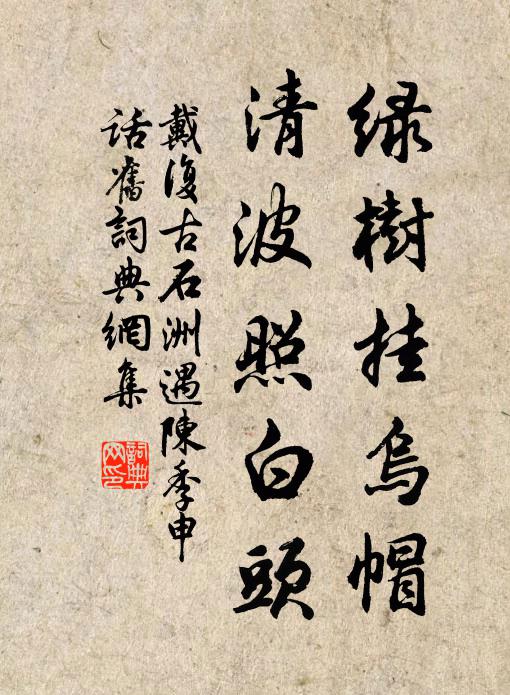 绿樹挂烏帽
清波照白頭
戴復古石洲遇陳季申
話舊詞典網集
詞典
网印